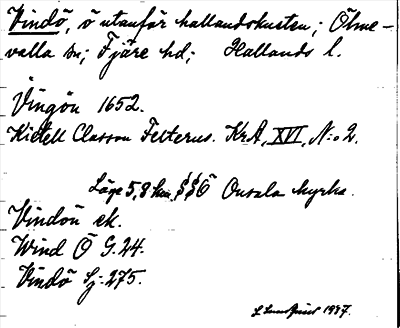 Vindö, ö utanför hallandskusten; Ölme-
valla sn; Fjäre hd; Hallands l.
Vingön 1652.
Kietell Classon Felterus. KrA, XVI, N:o 2.
Läge 5,8 km. SSÖ Onsala kyrka.
Vindön ek.
Wind Ö G. 24.
Vindö Sj. 275.
1997.